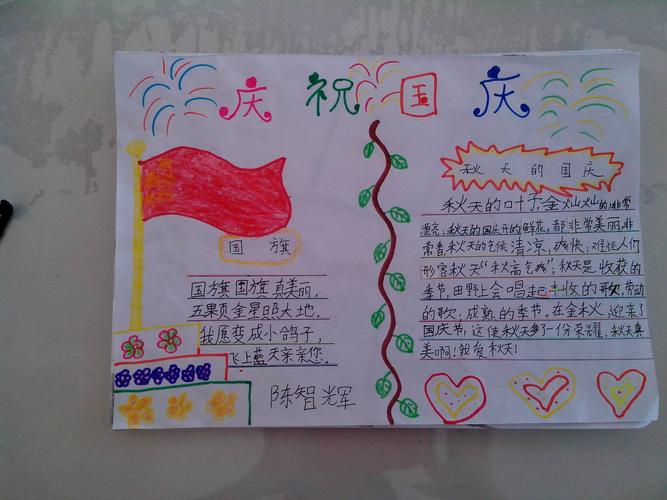 庆祝国庆
国旗
国旗国旗真美丽,
五颗金星照大地.
我愿变成小鸽子,
飞上蓝天亲亲您.
陈智辉
秋天的国庆
秋天的叶子金灿灿的非常
漂亮;秋天的国庆开的鲜花,都非常美丽,非
常香,秋天的气候清凉,爽快;难怪人们
形容秋天“秋高气爽”;秋天是收获的
季节,田野上会唱起丰收的歌,劳动
的歌,成熟的季节.在金秋迎来了
国庆节,这使秋天多了一份荣耀,秋天真
美啊!我爱秋天!